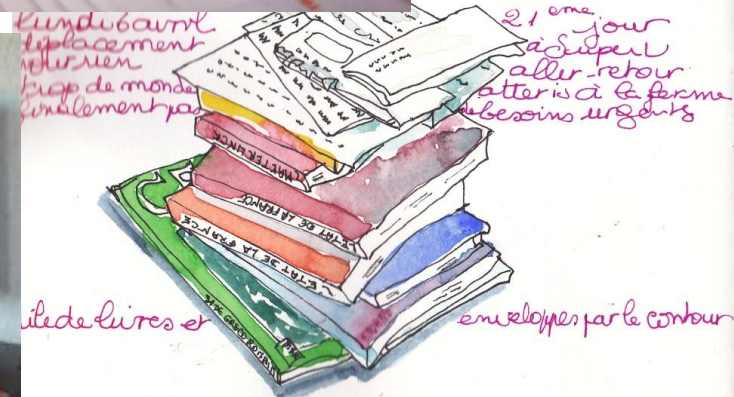 lundi 6 avril
déplacement
pour rien
trop de monde
finalement pas
21 eme jour
à Super U
aller-retour
à la ferme
besoins urgents
MAETERLINCK
L'ETAT DE LA FRANCE
L'ETAT DE LA FRANCE
pile de livres et
enveloppes par le contour